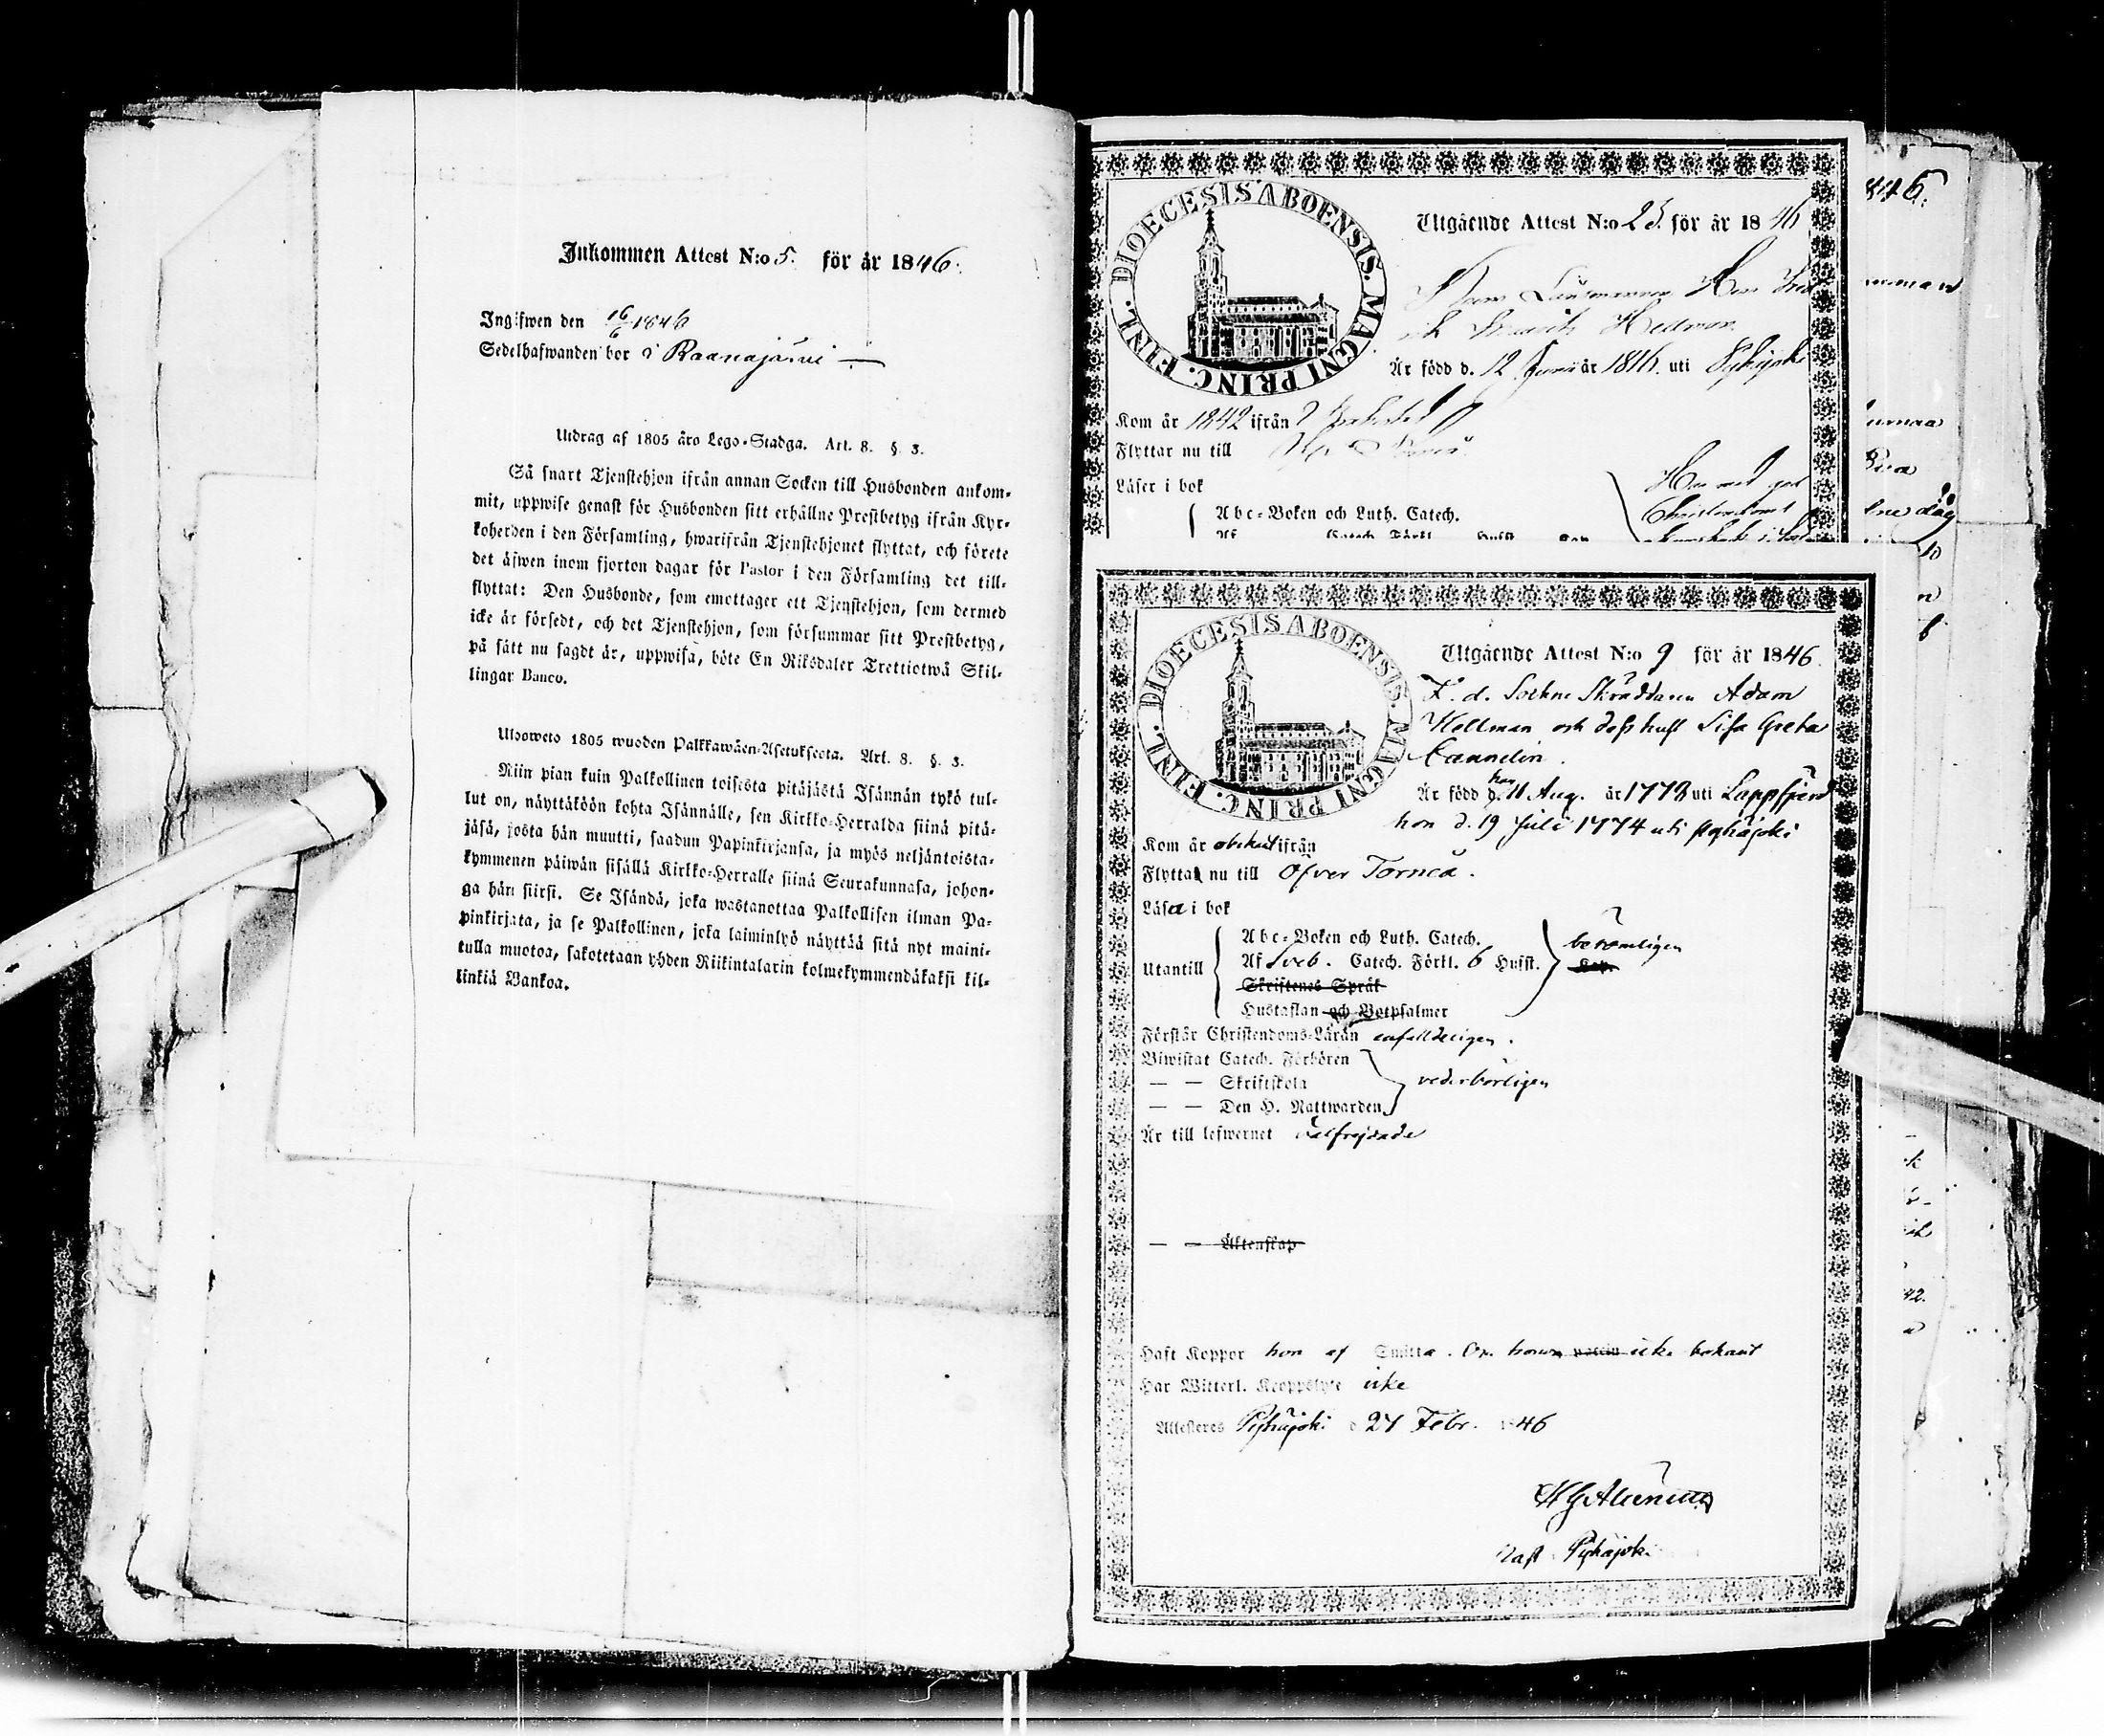 Inkommen Attest N:o 5. för år 1846.
Ingifwen den 16/6 1846
Sedelhafwanden bor i Raanajärvi —
Utdrag af 1805 åro Lego-Stadga. Art. 8. §. 3.
Så snart Tjenstehjon ifrån annan Socken till Husbonden ankom-
mit, uppwise genast för Husbonden sitt erhållne Prestbetyg ifrån Kyr-
koherden i den Församling, hwarifrån Tjenstehjonet flyttat, och förete
det äfwen inom fjorton dagar för Pastor i den Församling det till-
flyttat: Den Husbonde, som emottager ett Tjenstehjon, som dermed
icke är försedt, och det Tjenstehjon, som försummar sitt Prestbetyg,
på sätt nu sagdt är, uppwisa, böte En Riksdaler Trettiotwå Skil-
lingar Banco.
Ulooweto 1805 wuoden Palkkawäen-Asetuksesta. Art. 8. §. 3.
Niin pian kuin Palkollinen toisesta pitäjästä Isännän tykö tul-
lut on, näyttäköön kohta Isännälle, sen Kirkko-Herralda siinä pitä-
jäsä, josta hän muutti, saadun Papinkirjansa, ja myös neljäntoista-
kymmenen päiwän sisällä Kirkko-Herralle siinä Seurakunnasa, johon-
ga hän siirsi. Se Isändä, joka wastanottaa Palkollisen ilman Pa-
pinkirjata, ja se Palkollinen, joka laiminlyö näyttää sitä nyt maini-
tulla muotoa, sakotetaan yhden Riikintalarin kolmekymmendäkaksi kil-
linkiä Bankoa.
DIOECESIS ABOENSIS. MAGNI PRINC. FINL.
Utgående Attest N:o 23. för år 1846
Länsmannen
Hellman
Är född d. 12 Junii år 1816. uti Pyhäjoki
Kom år 1842 ifrån
Flyttar nu till
Läser i bok
Abc-Boken och Luth. Catech.
Har med god
Christendoms
DIOECESIS ABOENSIS. MAGNI PRINC. FINL.
Utgående Attest N:o 9 för år 1846.
F. d. Sockne Skräddaren Adam
Hellman och dess hust Lisa Greta
Cannelin.
Är född han d. 11 Aug. år 1778 uti Lappfjärd
hon d. 19 Juli 1774 uti Pyhäjoki
Kom år ifrån
Flyttar nu till Öfver Torneå.
Läsa i bok
Utantill
Abc-Boken och Luth. Catech.
Af Sveb. Catech. Förkl. 6 Hufst.
Skriftenes Språk
Hustaflan och Botpsalmer
berömligen
Förstår Christendoms-Läran enfalldeligen.
Biwistat Catech. Förhören
— — Skriftskola
— — Den H. Nattwarden
vederbörligen
Är till lefwernet välfrejdade
— — Äktenskap
Haft Koppor hon af Smitta. Om honom icke bekant
Har Witterl. Kroppslyte icke
Attesteras Pyhäjoki d 24 Febr. 1846
Past Pyhäjoki.